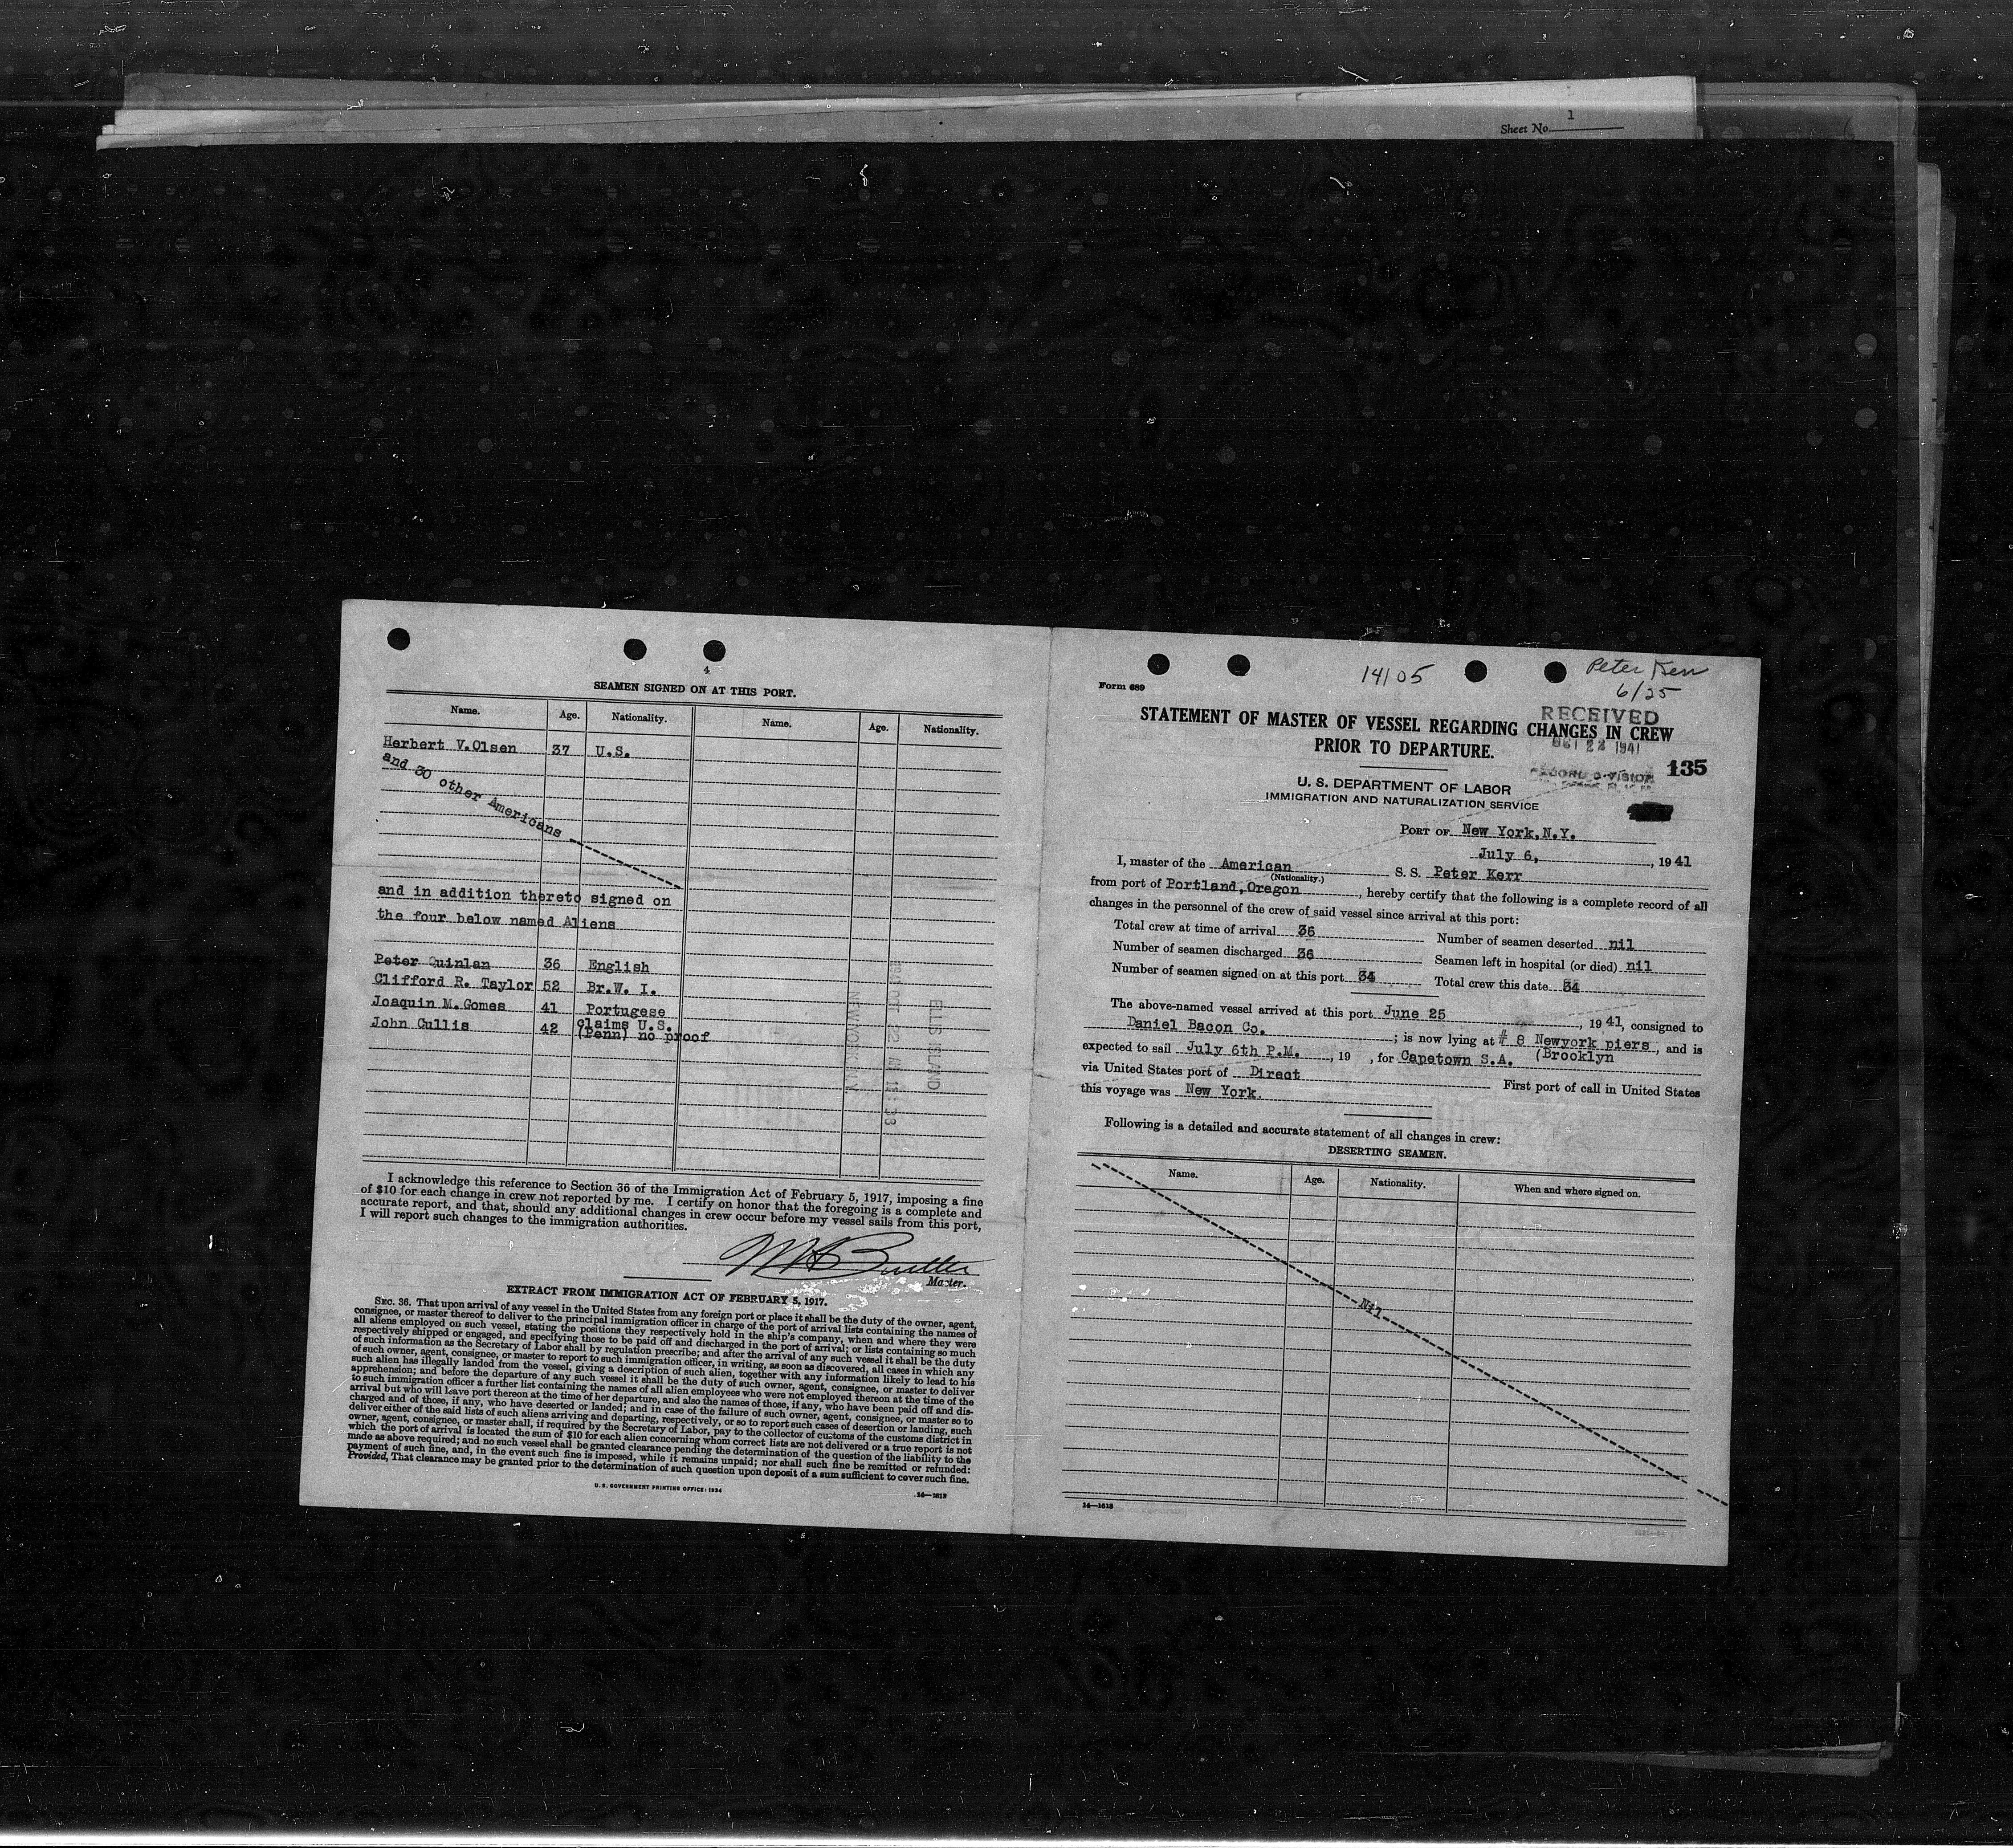 Sheet No. 1
4
SEAMEN SIGNED ON AT THIS PORT.
Name. Age. Nationality. Name. Age. Nationality.
Herbert V.Olsen 37 U.S.
and 30 other Americans
and in addition thereto signed on
the four below named Aliens
Peter Quinlan 36 English
Clifford R. Taylor 52 Br.W. I.
Joaquin M.Gomes 41 Portugese
John Cullis 42 claims U.S.
(Penn) no proof
ELLIS ISLAND
I acknowledge this reference to Section 36 of the Immigration Act of February 5, 1917, imposing a fine
of $10 for each change in crew not reported by me. I certify on honor that the foregoing is a complete and
accurate report, and that, should any additional changes in crew occur before my vessel sails from this port,
I will report such changes to the immigration authorities.
Master.
EXTRACT FROM IMMIGRATION ACT OF FEBRUARY 5, 1917.
SEC. 36. That upon arrival of any vessel in the United States from any foreign port or place it shall be the duty of the owner, agent,
consignee, or master thereof to deliver to the principal immigration officer in charge of the port of arrival lists containing the names of
all aliens employed on such vessel, stating the positions they respectively hold in the ship's company, when and where they were
respectively shipped or engaged, and specifying those to be paid off and discharged in the port of arrival; or lists containing so much
of such information as the Secretary of Labor shall by regulation prescribe; and after the arrival of any such vessel it shall be the duty
of such owner, agent, consignee, or master to report to such immigration officer, in writing, as soon as discovered, all cases in which any
such alien has illegally landed from the vessel, giving a description of such alien, together with any information likely to lead to his
apprehension; and before the departure of any such vessel it shall be the duty of such owner, agent, consignee, or master to deliver
to such immigration officer a further list containing the names of all alien employees who were not employed thereon at the time of the
arrival but who will leave port thereon at the time of her departure, and also the names of those, if any, who have been paid off and dis-
charged and of those, if any, who have deserted or landed; and in case of the failure of such owner, agent, consignee, or master so to
deliver either of the said lists of such aliens arriving and departing, respectively, or so to report such cases of desertion or landing, such
owner, agent, consignee, or master shall, if required by the Secretary of Labor, pay to the collector of customs of the customs district in
which the port of arrival is located the sum of $10 for each alien concerning whom correct lists are not delivered or a true report is not
made as above required; and no such vessel shall be granted clearance pending the determination of the question of the liability to the
payment of such fine, and, in the event such fine is imposed, while it remains unpaid; nor shall such fine be remitted or refunded:
Provided, That clearance may be granted prior to the determination of such question upon deposit of a sum sufficient to cover such fine.
U. S. GOVERNMENT PRINTING OFFICE: 1934 14—1613
Form 689
14105
Peter Kerr
6/25
RECEIVED
STATEMENT OF MASTER OF VESSEL REGARDING CHANGES IN CREW
PRIOR TO DEPARTURE.
OCT 22 1941
RECORD DIVISION
135
U. S. DEPARTMENT OF LABOR
IMMIGRATION AND NATURALIZATION SERVICE
PORT OF New York,N.Y.
July 6, , 1941
I, master of the American S. S. Peter Kerr
(Nationality.)
from port of Portland,Oregon , hereby certify that the following is a complete record of all
changes in the personnel of the crew of said vessel since arrival at this port:
Total crew at time of arrival 36 Number of seamen deserted nil
Number of seamen discharged 36 Seamen left in hospital (or died) nil
Number of seamen signed on at this port 34 Total crew this date 34
The above-named vessel arrived at this port June 25 , 1941, consigned to
Daniel Bacon Co. ; is now lying at # 8 Newyork piers , and is
expected to sail July 6th P.M. , 19 , for Capetown S.A. (Brooklyn
via United States port of Direct First port of call in United States
this voyage was New York.
Following is a detailed and accurate statement of all changes in crew:
DESERTING SEAMEN.
Name. Age. Nationality. When and where signed on.
Nil
14—1613